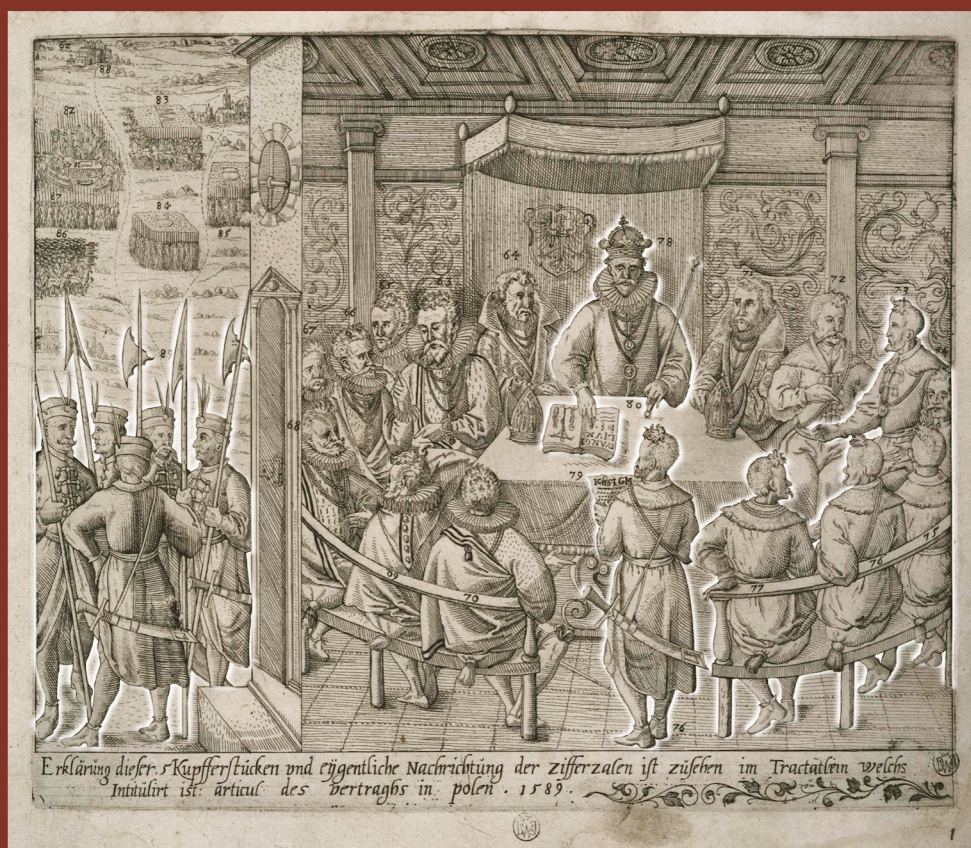 62
88
83
82
87
84
85
86
78
64
63
65
66
67
71
72
73
68
80
79
69
70
77
76
76
Erklärüng dieser. 5 Kupfferstücken vnd eÿgentliche Nachrichtüng der zifferzalen ist züsehen im Tractätlein welchs
Intitülirt ist: articul des vertraghs in polen . 1589.
1